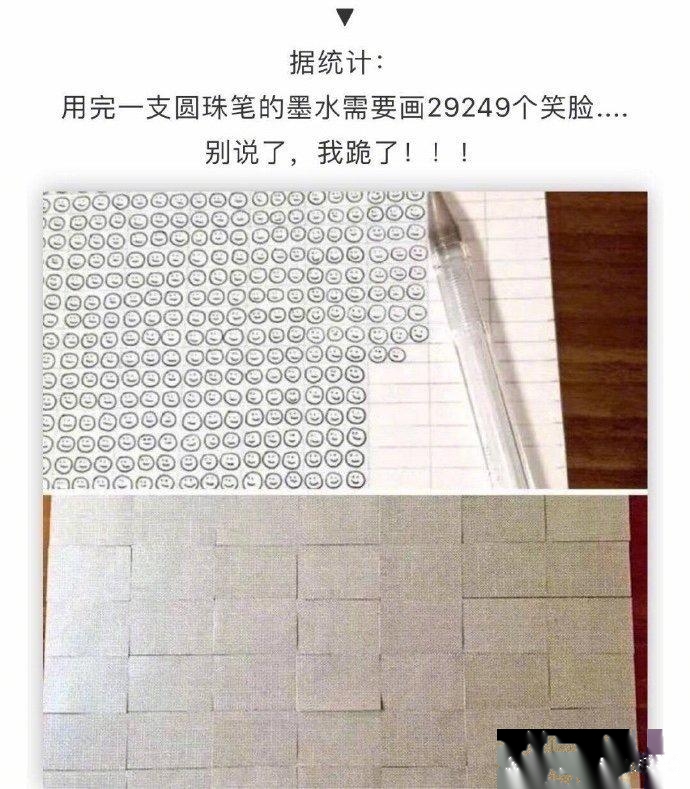 据统计：
用完一支圆珠笔的墨水需要画29249个笑脸....
别说了，我跪了！！！